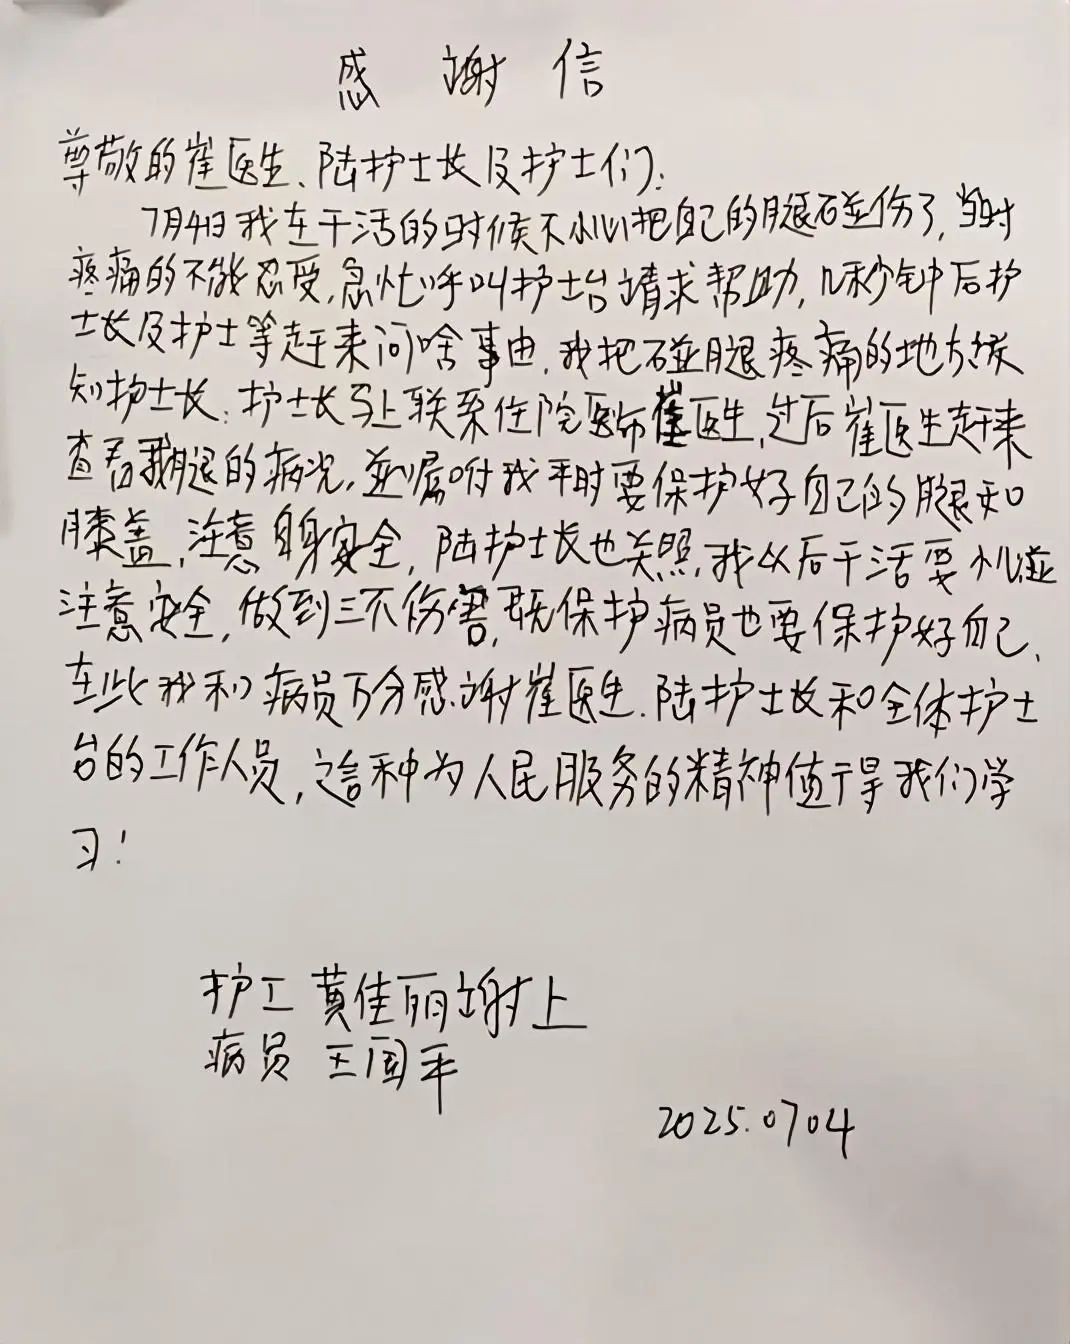 感谢信
尊敬的崔医生、陆护士长及护士们:
7月4日我在干活的时候不小心把自己的腿碰伤了,当时
疼痛的不能忍受,急忙呼叫护士台请求帮助,几秒钟后护
士长及护士等赶来问啥事由,我把碰腿疼痛的地方
知护士长:护士长马上联系住院医师崔医生,过后崔医生赶来
查看我腿的病况,并嘱咐我平时要保护好自己的腿和
膝盖,注意自身安全,陆护士长也关照,我以后干活要
注意安全,做到三不伤害,既保护病员也要保护好自己、
在此我和病员万分感谢崔医生.陆护士长和全体护士
台的工作人员,这种为人民服务的精神值得我们学
习!
护工 黄佳丽谢上
病员 王国平
2025.0704